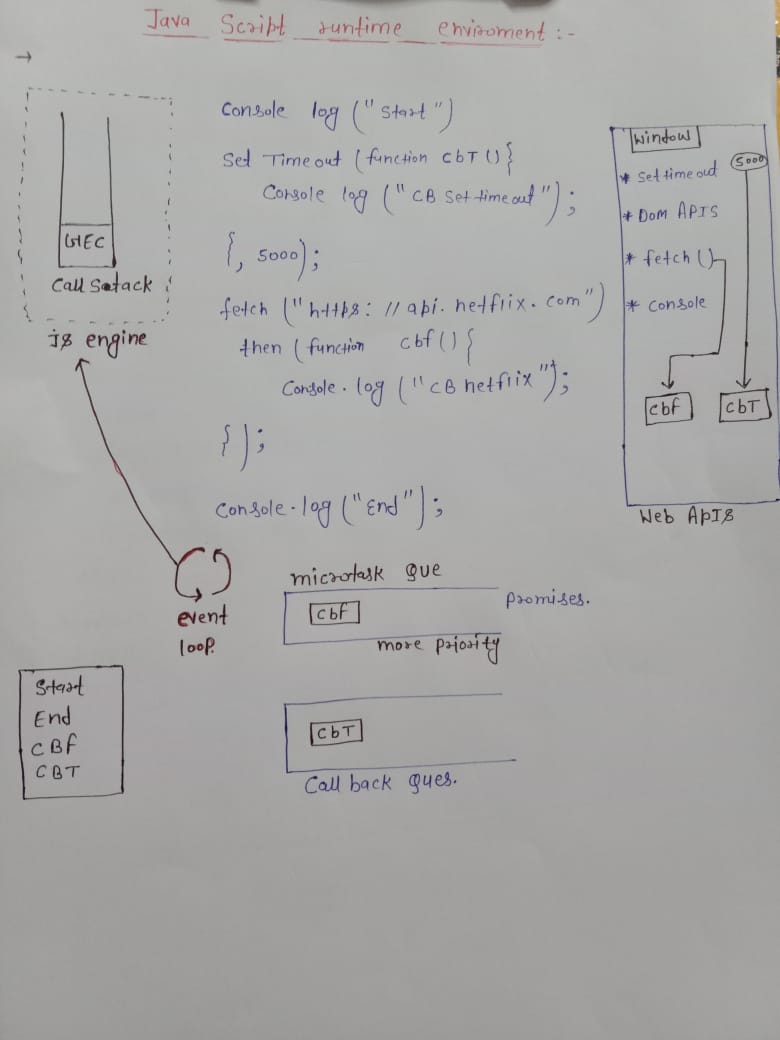 Java Script runtime enviroment :-
→
Console log ("Start")
Set Timeout (function cbT () {
Console log ("CB Set timeout");
{, 5000);
fetch ("https: // api. netflix. com")
then (function cbf () {
Console. log ("CB netflix");
} );
Console. log ("End");
GEC
Call Satack
js engine
Window
5000
* Set time out
* Dom APIS
* fetch ()
* console
cbf
cbT
Web ApIs
event
loop.
microtask que
cbf
promises.
more priority
CbT
Call back ques.
Start
End
CBf
CBT